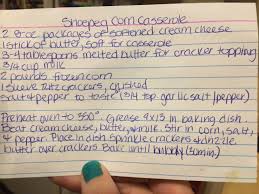 Shoepeg Corn Casserole
2 8oz packages of softened cream cheese
1 stick of butter, soft for casserole
3-4 tablespoons melted butter for cracker topping
3/4 cup milk
2 pounds frozen corn
1 sleeve ritz crackers, crushed
Salt & pepper to taste (3/4 tsp garlic salt/pepper)
Preheat oven to 350°. Grease 9x13 in baking dish
Beat cream cheese, butter, & milk. Stir in corn, salt,
& pepper. Place in dish. Sprinkle crackers & drizzle
butter over crackers. Bake until bubbly (30min)